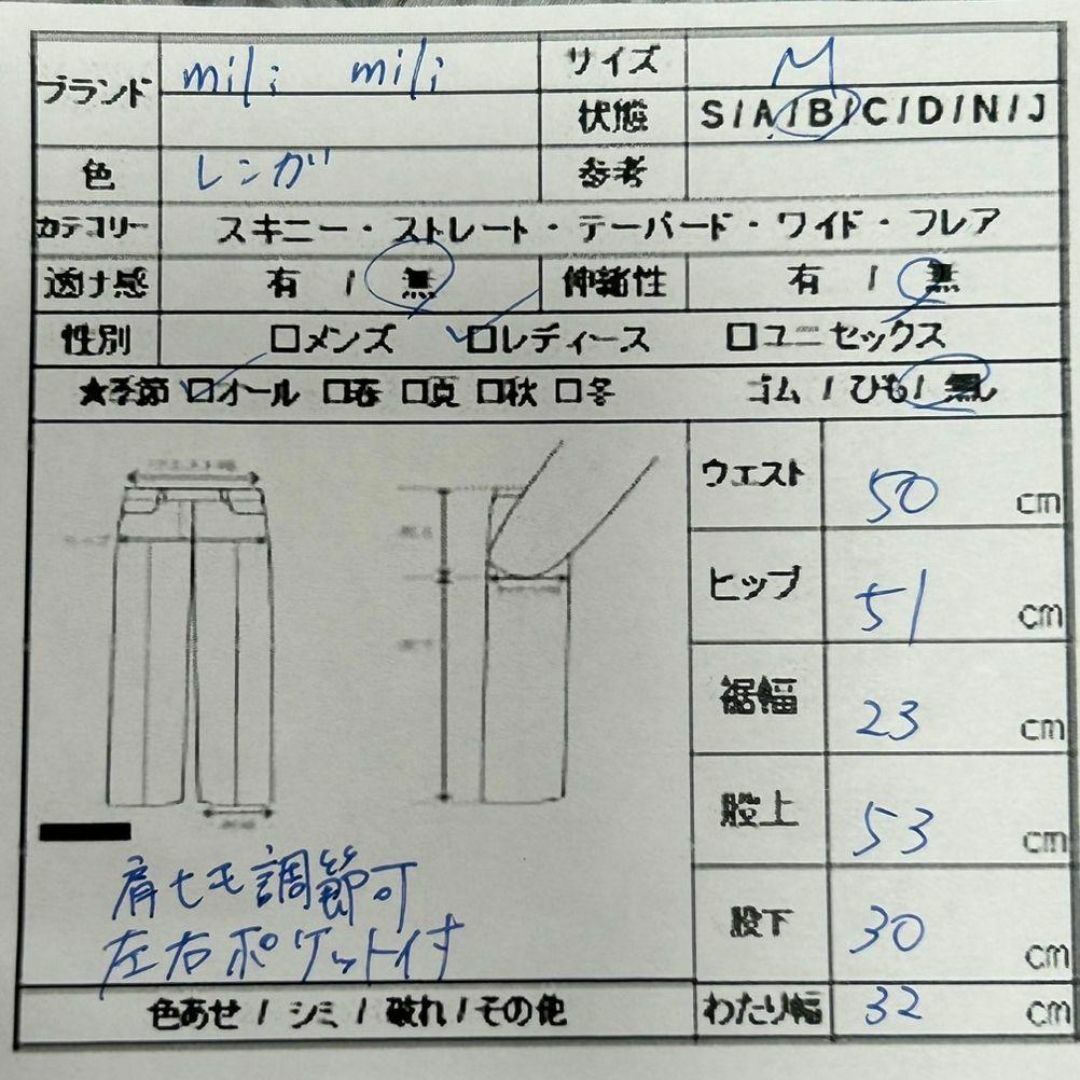 ブランド mili mili サイズ M
状態 S/A/B/C/D/N/J
色 レンガ 参考
カテゴリー スキニー・ストレート・テーパード・ワイド・フレア
透け感 有 / 無 伸縮性 有 / 無
性別 □メンズ □レディース □ユニセックス
★季節 □オール □春 □夏 □秋 □冬 ゴム / ひも / 無し
ウエスト 50 cm
ヒップ 51 cm
裾幅 23 cm
股上 53 cm
肩ヒモ調節可
左右ポケット付
股下 30 cm
色あせ / シミ / 破れ / その他
わたり幅 32 cm